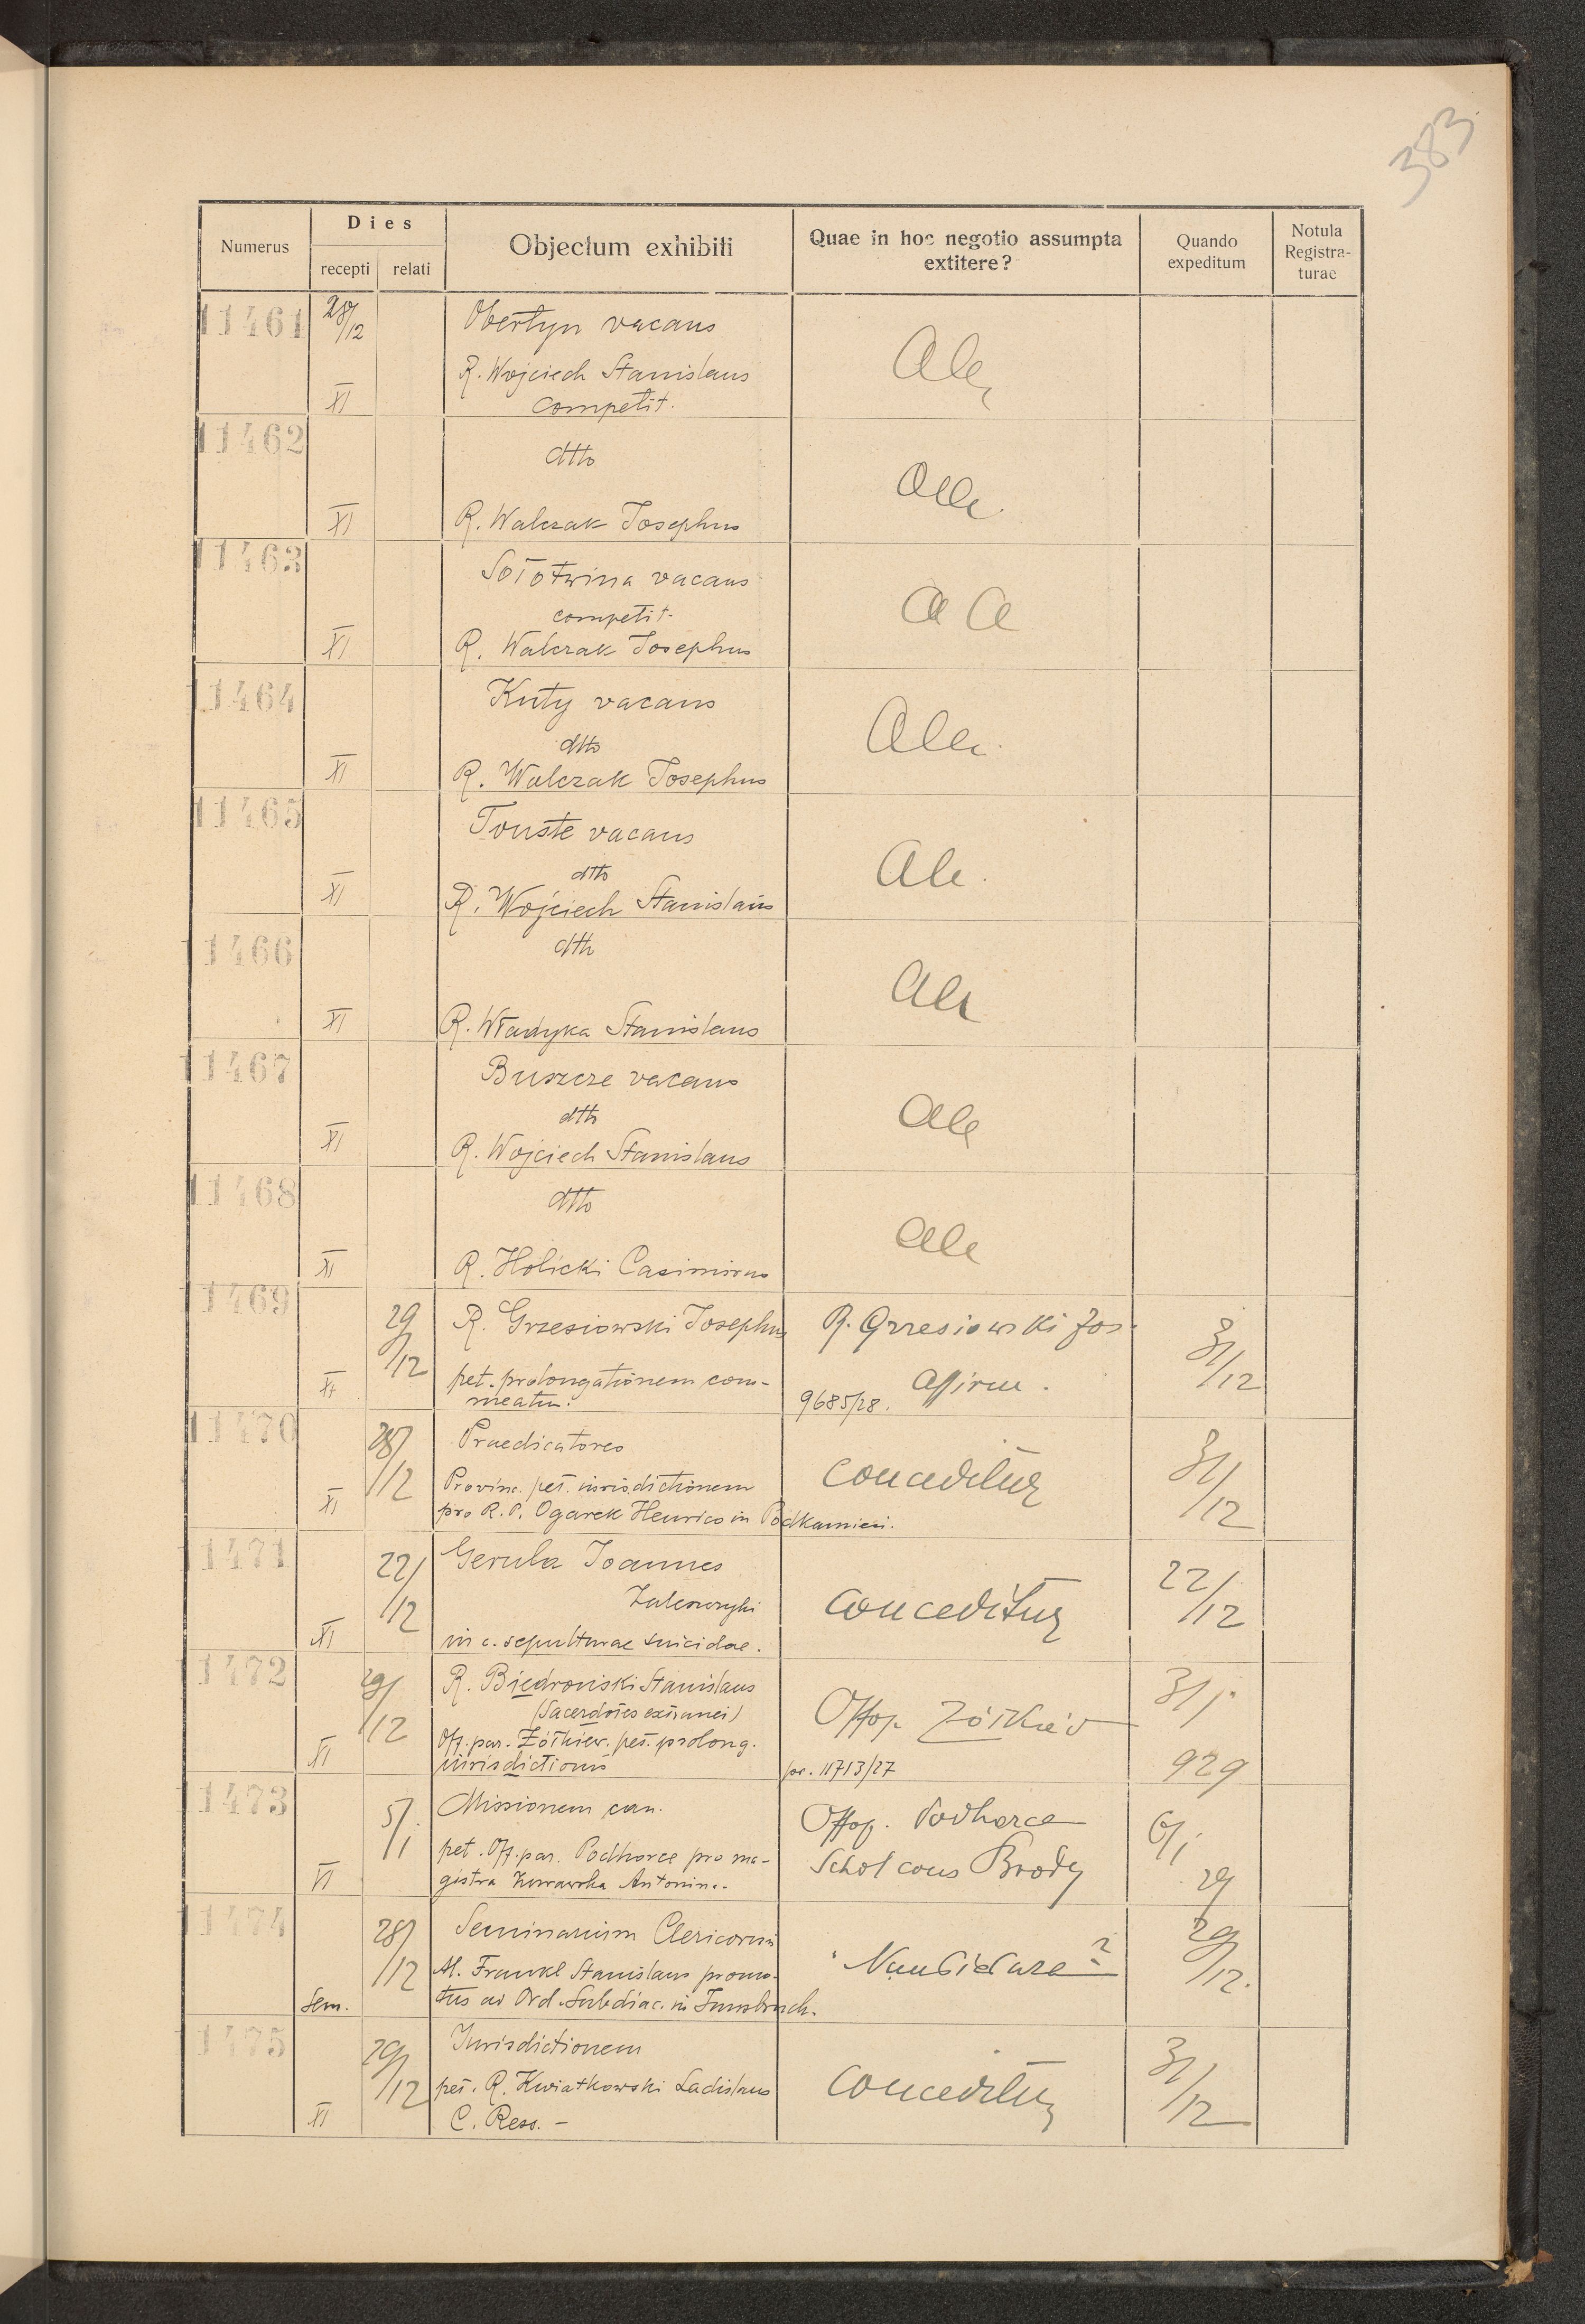 383
Numerus
Dies
recepti
relati
Objectum exhibiti
Quae in hoc negotio assumpta
extitere?
Quando
expeditum
Notula
Registra-
turae
11461
28/12
XI
Obertyn vacans
R. Wojciech Stanislaus
competit.
11462
XI
dtto
R. Walczak Josephus
11463
XI
Sołotwina vacans
competit.
R. Walczak Josephus
aa
11464
XI
Kuty vacans
dtto
R. Walczak Josephus
11465
XI
Touste vacans
dtto
R. Wojciech Stanislaus
11466
XI
dtto
R. Władyka Stanislaus
11467
XI
Buszcze vacans
dtto
R. Wojciech Stanislaus
11468
XI
dtto
R. Holicki Casimirus
11469
XI
29/12
R. Grzesiowski Josephus
pet. prolongationem com-
meatu.
R. Grzesiowski Jos.
Affirm.
9685/28.
31/12
11470
XI
28/12
Praedicatores
Provinc. pet. iurisdictionem
pro R. P. Ogarek Henrico in Podkamień.
conceditur
31/12
11471
XI
22/12
Gerula Joannes
Zaleszczyki
in c. sepulturae suicidae.
conceditur
22/12
11472
XI
29/12
R. Biedroński Stanislaus
(Sacerdotes extranei)
Off. par. Żółkiew. pet. prolong.
iurisdictionis
Offop. Żółkiew
pr. 11713/27
31/1
929
11473
VI
5/1
Missionem can.
pet. Off. par. Podhorce pro ma-
gistra Żurawska Antonina.
Offop. Podhorce
Schol cons Brody
6/1
29
11474
Sem.
28/12
Seminarium Clericorum
Al. Frankl Stanislaus promo-
tus ad Ord. Subdiac. in Innsbruck.
29/12.
11475
XI
29/12
Jurisdictionem
pet. R. Kwiatkowski Ladislaus
C. Ress. -
conceditur
31/12